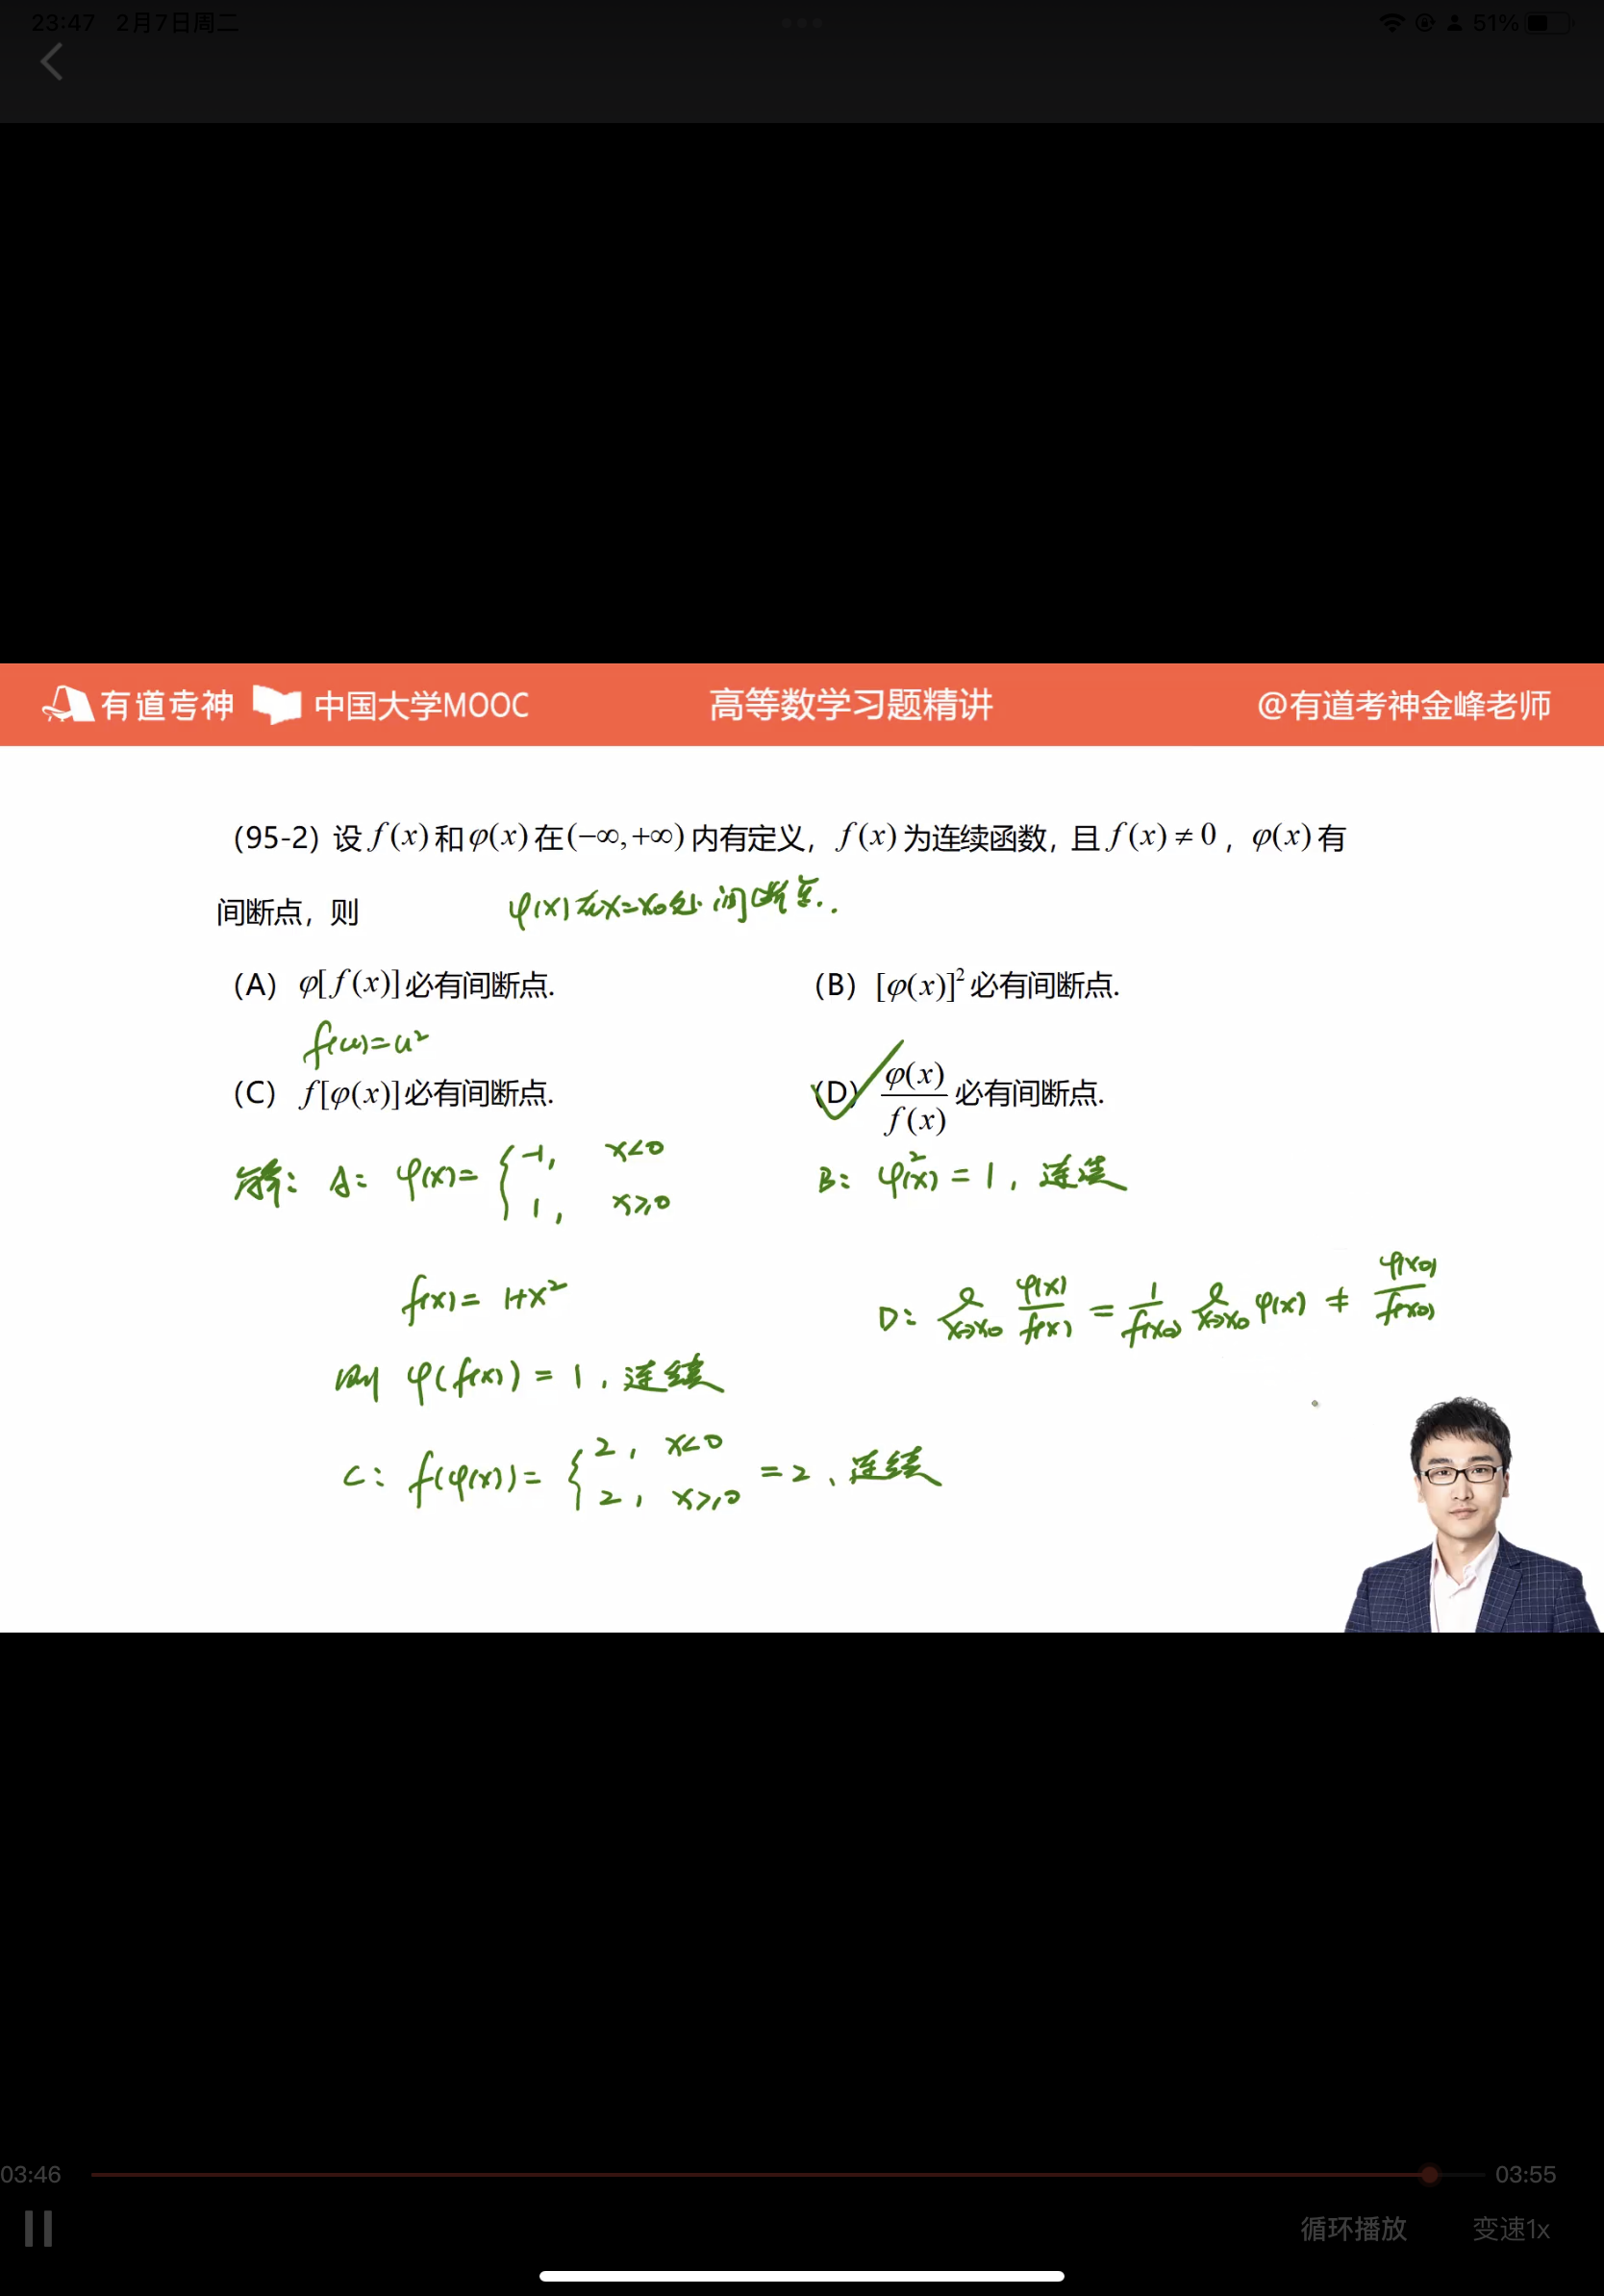 23:47 2月7日周二
51%
有道考神 中国大学MOOC 高等数学习题精讲 @有道考神金峰老师
（95-2）设 f(x) 和 φ(x) 在 (−∞,+∞) 内有定义，f(x) 为连续函数，且 f(x) ≠ 0，φ(x) 有
间断点，则
φ(x)在x=x₀处间断.
（A） φ[f(x)] 必有间断点.
（B） [φ(x)]² 必有间断点.
f(u)=u²
（C） f[φ(x)] 必有间断点.
（D） φ(x)/f(x) 必有间断点.
解: A: φ(x)= { -1, x<0
1, x≥0
B: φ²(x) = 1, 连续
f(x) = 1+x²
D: lim x→x₀ φ(x)/f(x) = 1/f(x₀) lim x→x₀ φ(x) ≠ φ(x₀)/f(x₀)
则 φ(f(x)) = 1, 连续
C: f(φ(x)) = { 2, x<0
2, x≥0 = 2, 连续
03:46 03:55
循环播放 变速1x